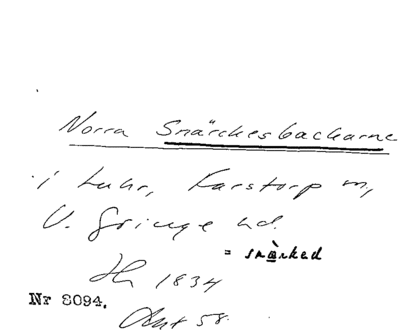 Norra Snärckesbackarne
i Luhr, Karstorp m,
V. Gӧinge hd.
= snàrked
1834
Nr 8094.
Akt 58.